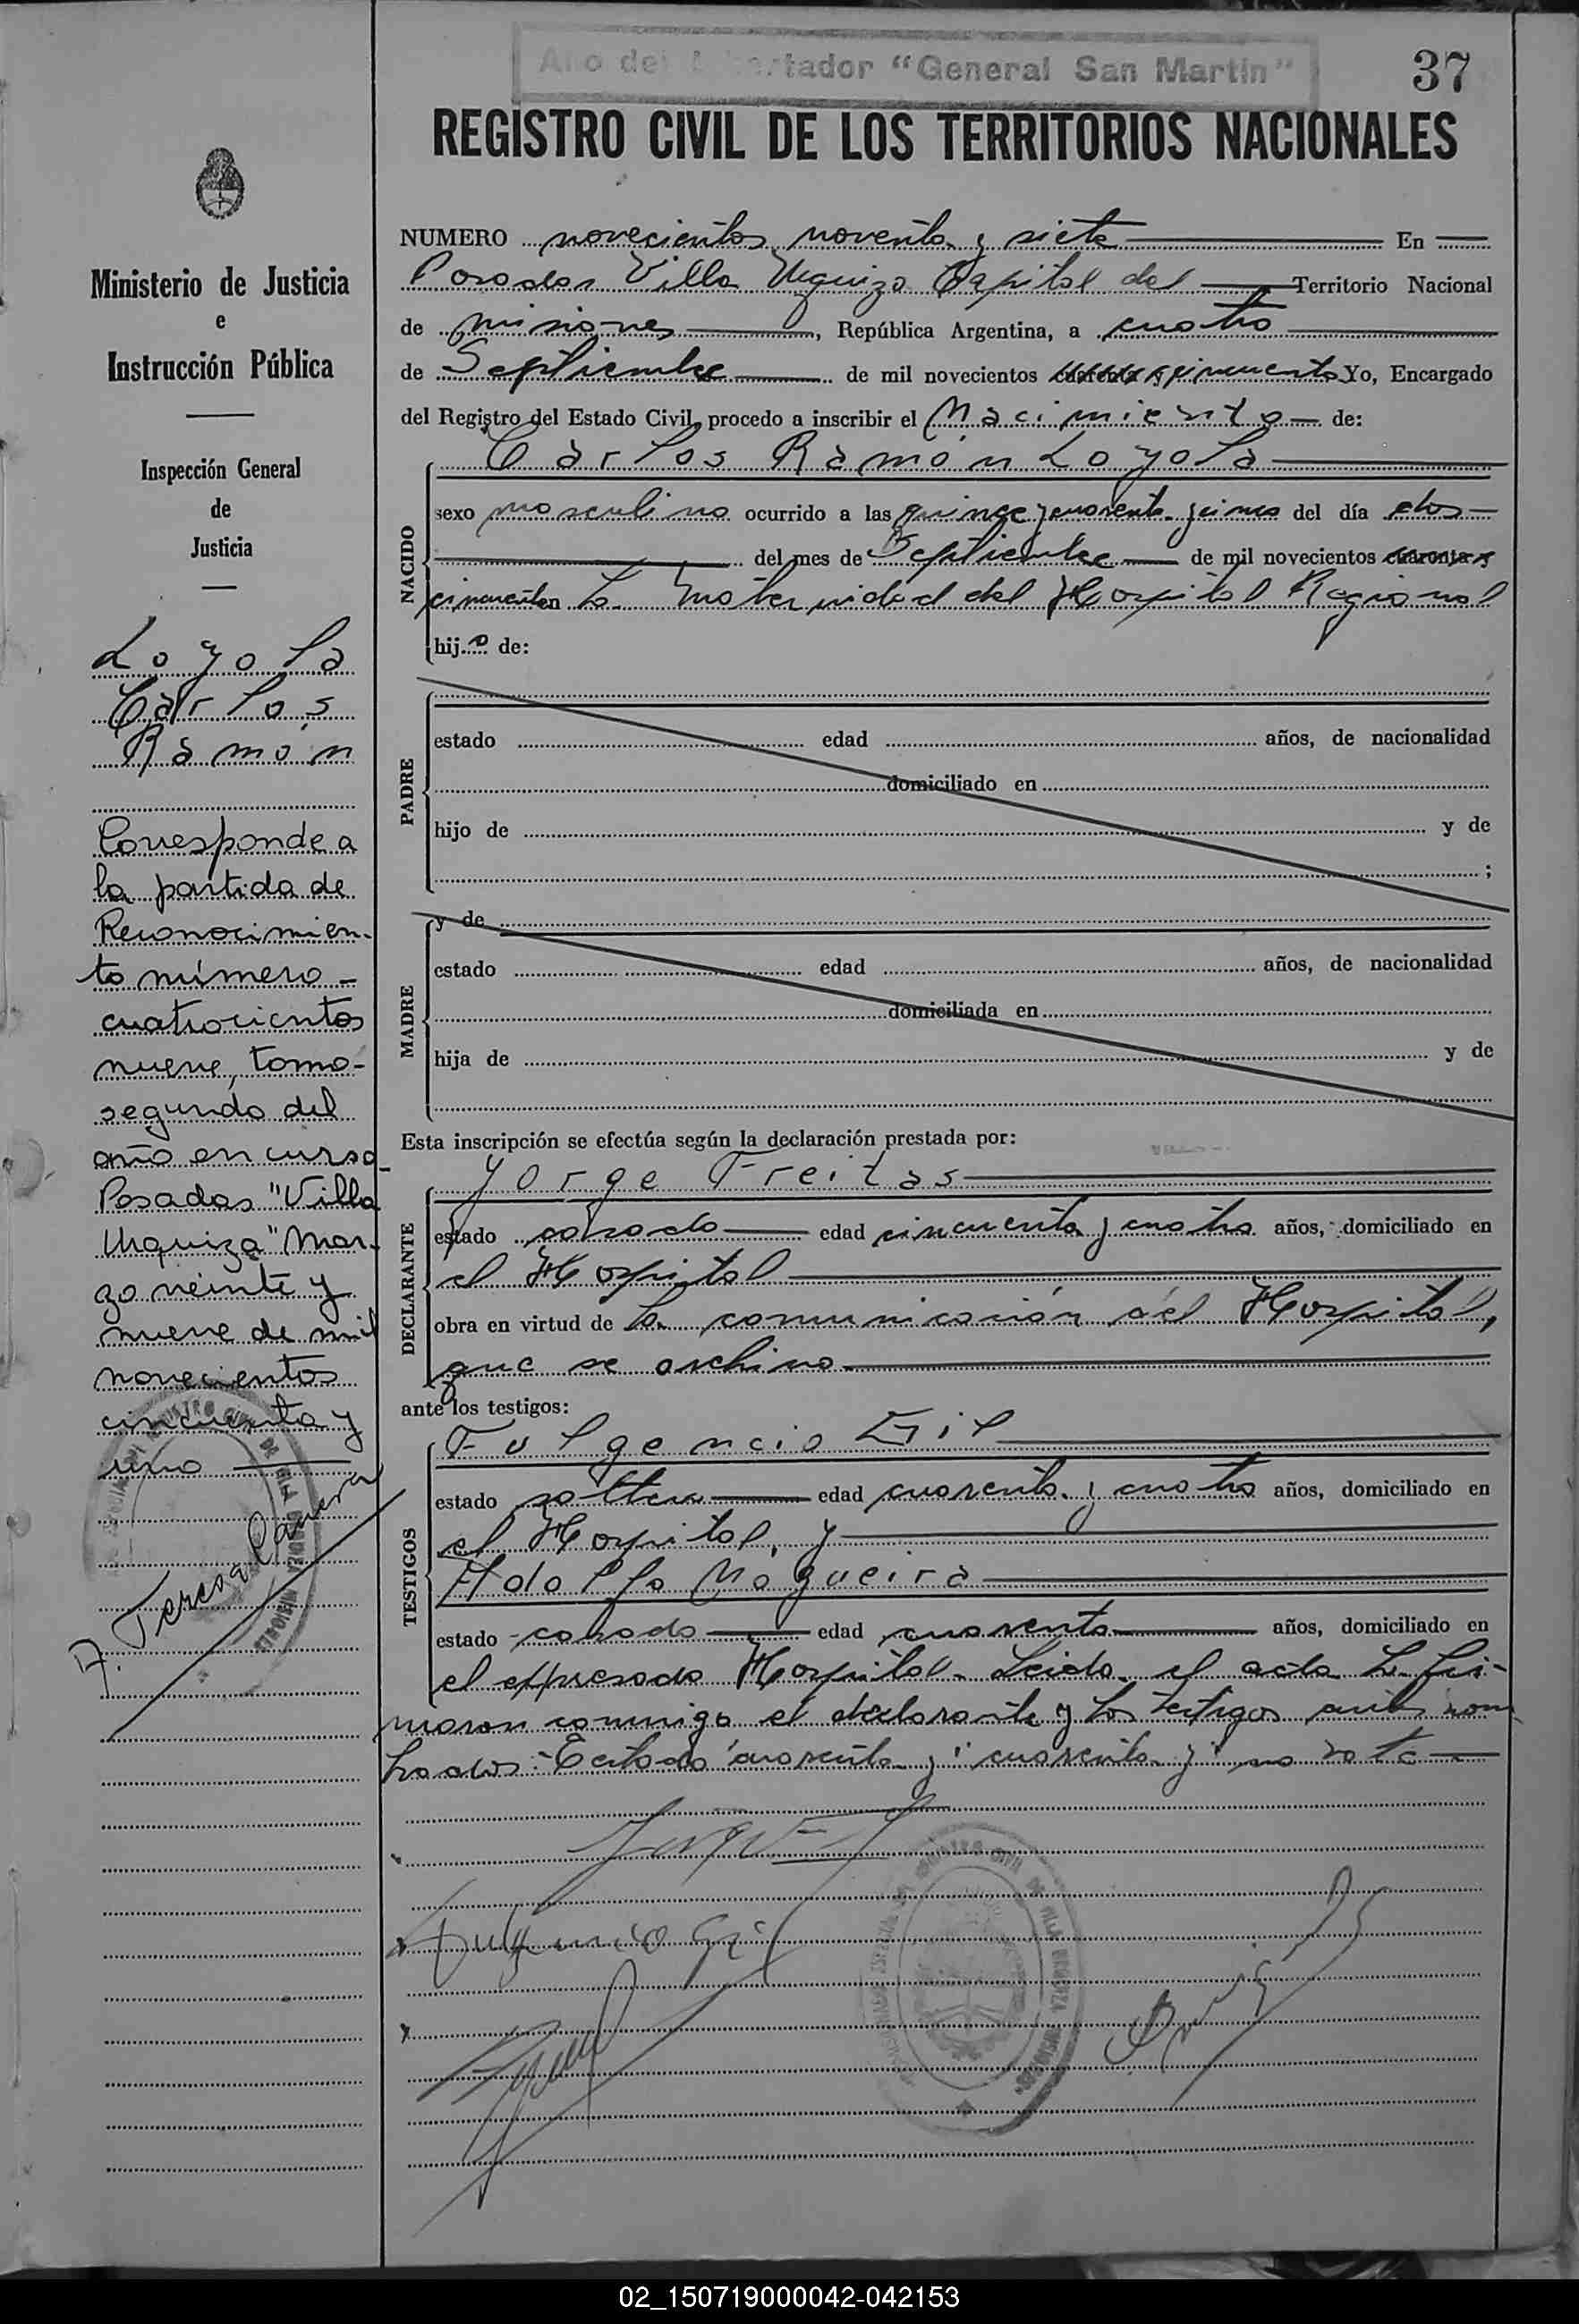 Año del Libertador "General San Martín"
37
REGISTRO CIVIL DE LOS TERRITORIOS NACIONALES
Ministerio de Justicia
e
Instrucción Pública
Inspección General
de
Justicia
Loyola
Carlos
Ramón
Corresponde a
la partida de
Reconocimien-
to número -
cuatrocientos
nueve, tomo-
segundo del
año en curso-
Posadas "Villa
Urquiza" Mar-
zo veinte y
nueve de mil
novecientos
cincuenta y
uno
NUMERO novecientos noventa y siete En
Posadas Villa Urquiza Capital del Territorio Nacional
de misiones, República Argentina, a cuatro
de Septiembre de mil novecientos cuarenta y cincuenta Yo, Encargado
del Registro del Estado Civil, procedo a inscribir el Nacimiento de:
NACIDO
Carlos Ramón Loyola
sexo masculino ocurrido a las quince y cuarenta y cinco del día dos
del mes de Septiembre de mil novecientos cuarenta y
cincuenta en la Maternidad del Hospital Regional
hijo de:
PADRE
estado edad años, de nacionalidad
domiciliado en
hijo de y de
;
MADRE
y de
estado edad años, de nacionalidad
domiciliada en
hija de y de
Esta inscripción se efectúa según la declaración prestada por:
DECLARANTE
Jorge Freitas
estado casado edad cincuenta y cuatro años, domiciliado en
el Hospital
obra en virtud de la comunicación del Hospital,
que se archiva
ante los testigos:
TESTIGOS
Fulgencio Gil
estado soltero edad cuarenta y cuatro años, domiciliado en
el Hospital, y
Adolfo Nogueira
estado casado edad cuarenta años, domiciliado en
el expresado Hospital. Leida el acta la fir-
maron conmigo el declarante y los testigos antes nom
brados:- Testado "cuarenta y" cuarenta y" no vale
Fulgencio Gil
02_150719000042-042153